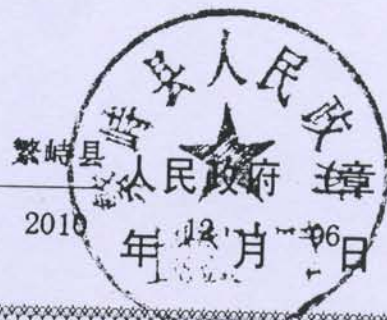 繁峙县人民政府
繁峙县
人民政府 章
2010 年 12 月 06 日